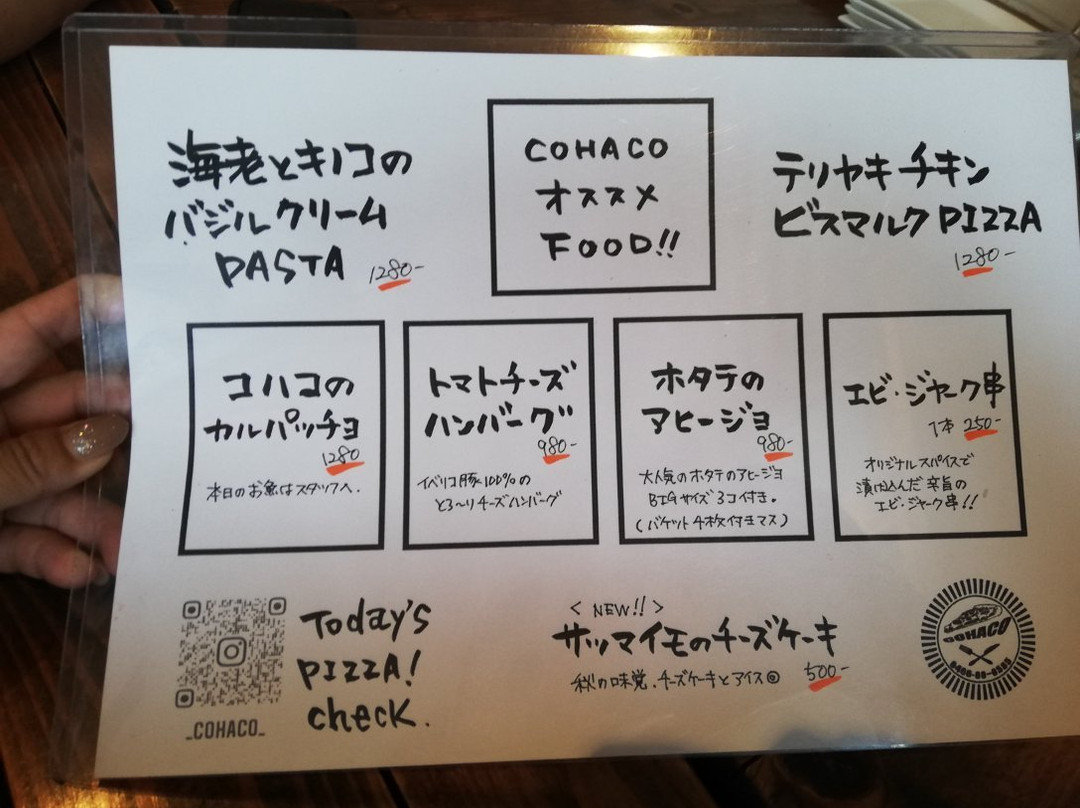 海老とキノコの
バジルクリーム
PASTA 1280-
COHACO
オススメ
FOOD!!
テリヤキチキン
ビスマルクPIZZA
1280-
コハコの
カルパッチョ
1280
本日のお魚はスタッフへ.
トマトチーズ
ハンバーグ
980-
イベリコ豚100%の
とろ〜りチーズハンバーグ
ホタテの
アヒージョ
980-
大人気のホタテのアヒージョ
BIGサイズ3コ付き。
(バケット4枚付きマス)
エビ・ジャーク串
1本 250-
オリジナルスパイスで
漬け込んだ辛旨の
エビ・ジャーク串!!
Today's
PIZZA!
check.
_COHACO_
< NEW!! >
サツマイモのチーズケーキ
秋の味覚.チーズケーキとアイス◎
500-
COHACO